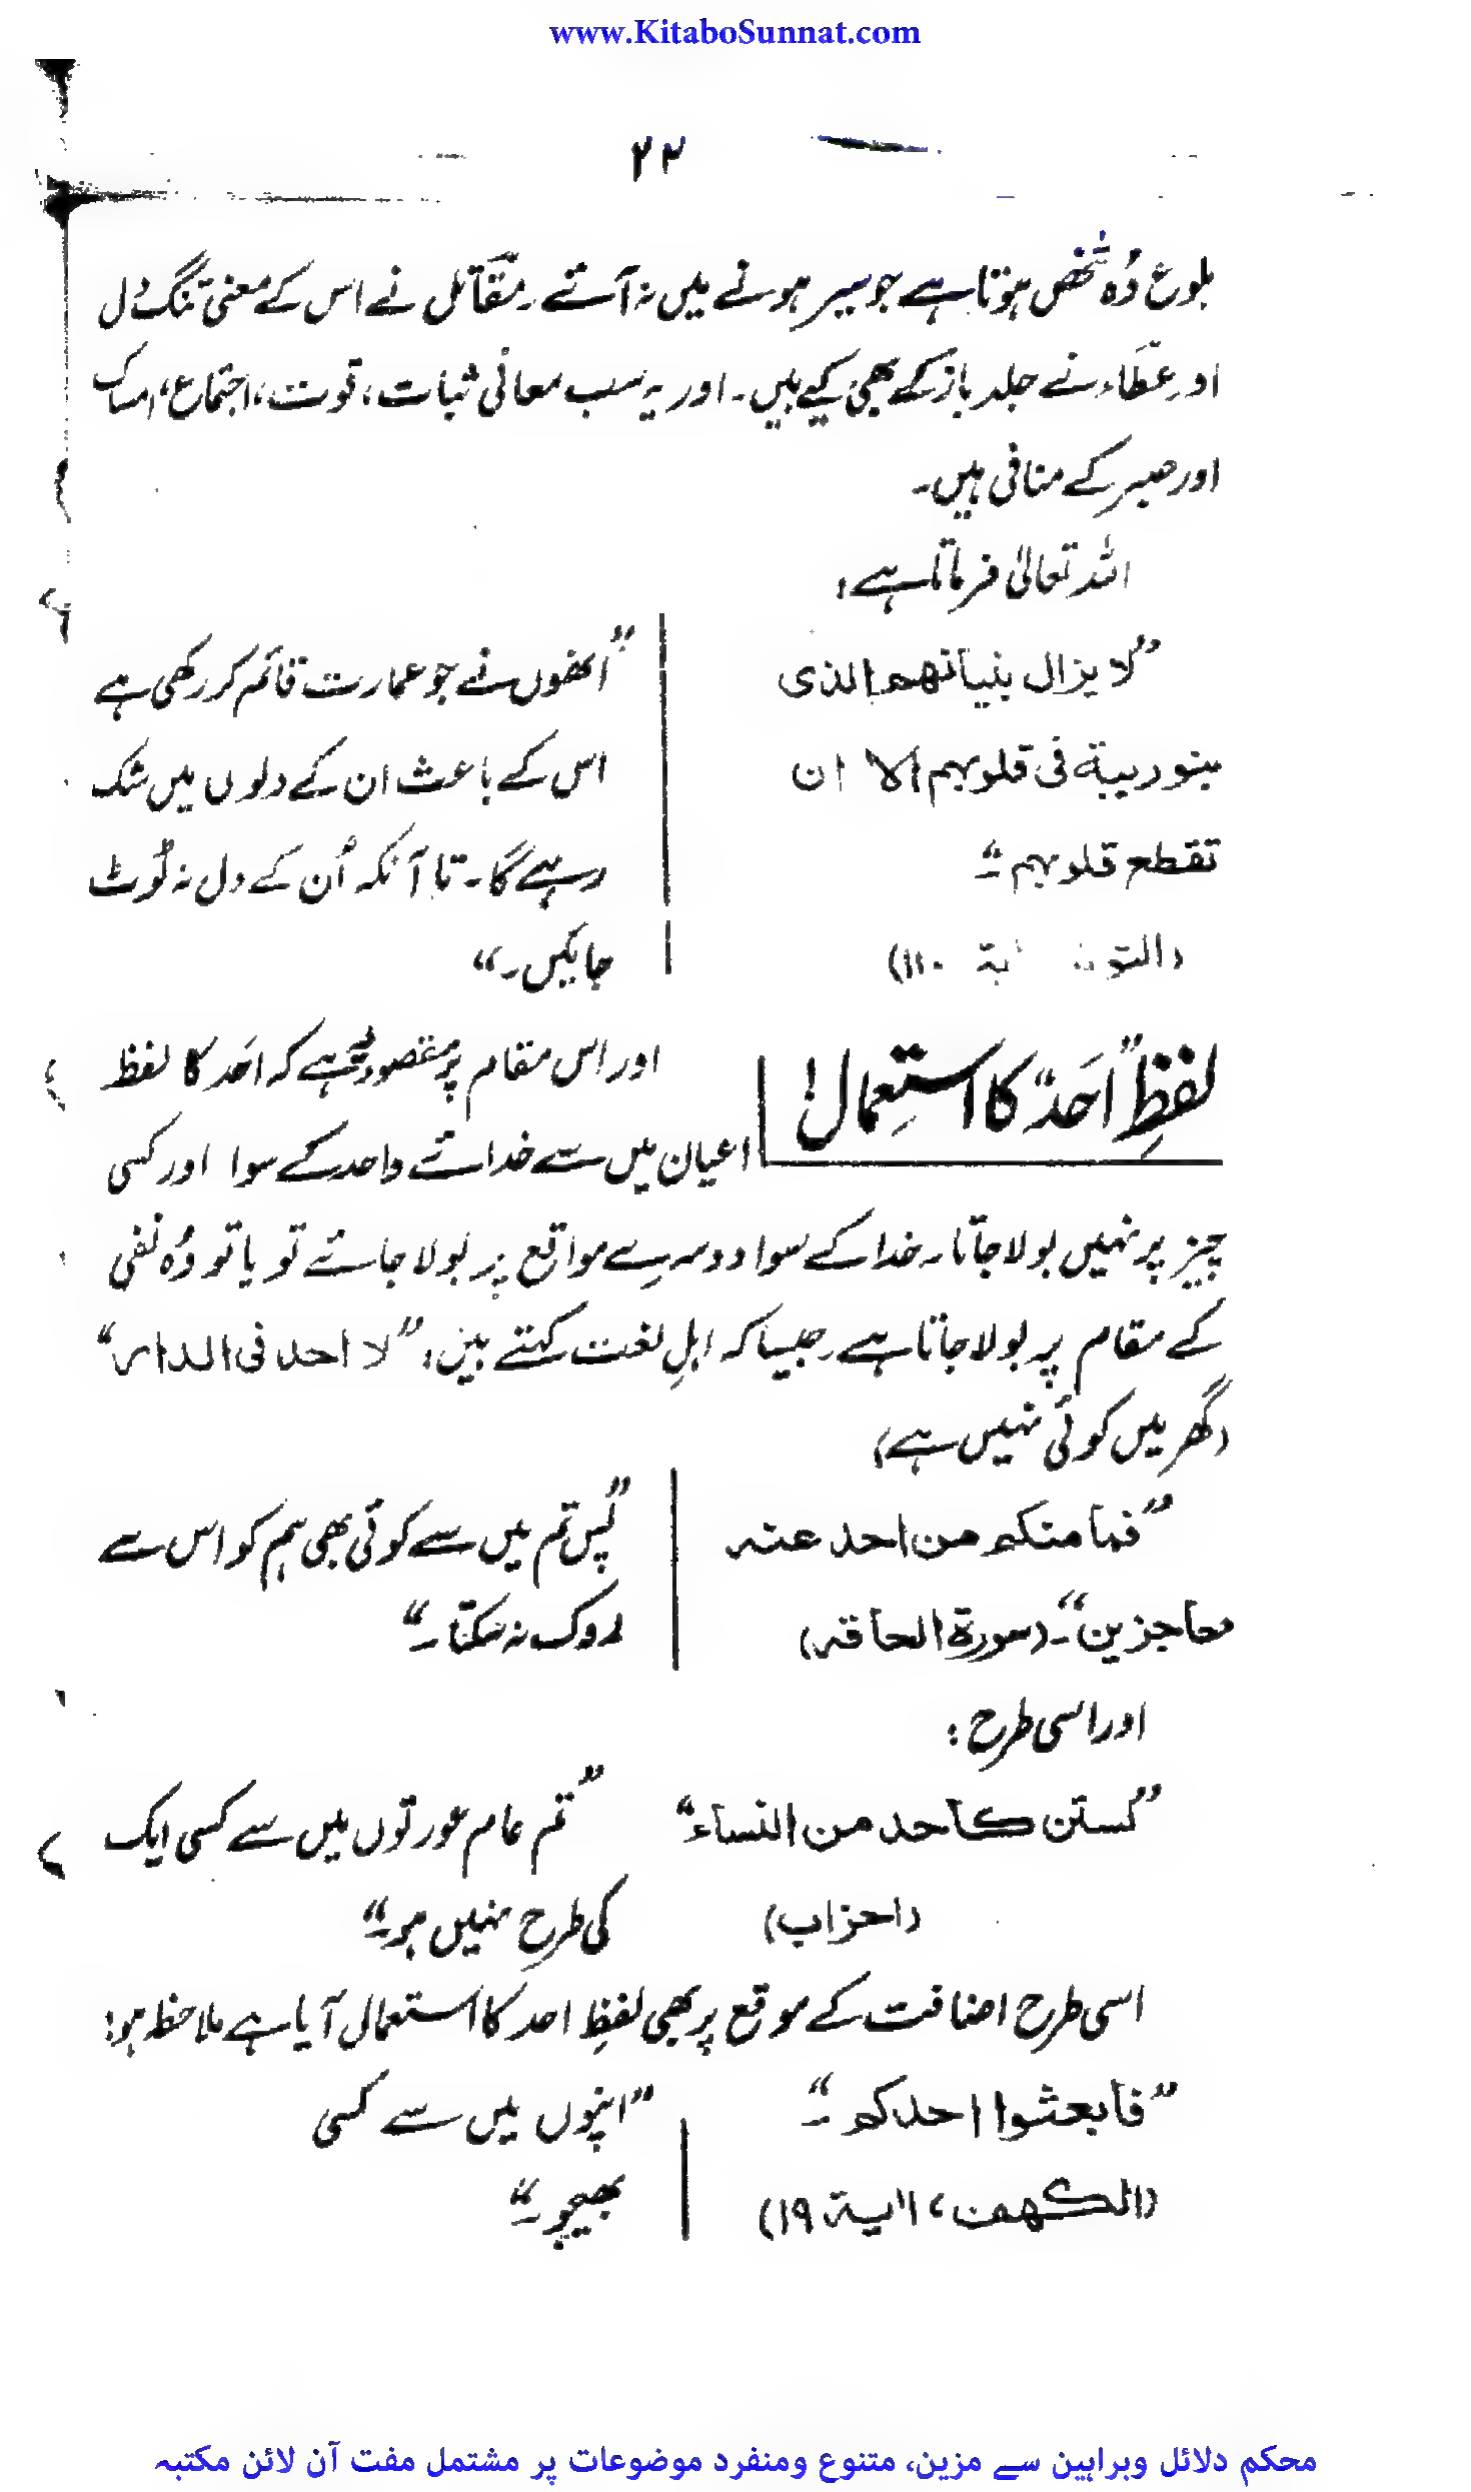 www.KitaboSunnat.com
۲۲
بلوع وُہ شخص ہوتا ہے جو سیر ہونے میں نہ آئے۔ مقاتل نے اس کے معنی تنگ دل
اور عطاء نے جلد باز کے بھی کیے ہیں۔ اور یہ سب معانی ثبات، قوت، اجتماع، امساک
اور صبر کے منافی ہیں۔
اللہ تعالیٰ فرماتا ہے:
”لا یزال بنیانھم الذی
بنوریبۃ فی قلوبہم الا ان
تقطع قلوبہم“۔
(التوبۃ ۱۱۰)
”اُنھوں نے جو عمارت قائم کر رکھی ہے
اس کے باعث ان کے دلوں میں شک
رہے گا۔ تا آنکہ اُن کے دل نہ ٹوٹ
جائیں۔“
لفظِ ”اَحَد“ کا استِعمال!
اور اس مقام پر مقصود یہ ہے کہ احَد کا لفظ
اعیان میں سے خدائے واحد کے سوا اور کسی
چیز پر نہیں بولا جاتا۔ خدا کے سوا دوسرے مواقع پر بولا جائے تو یا تو وُہ نفی
کے مقام پر بولا جاتا ہے۔ جیسا کہ اہلِ لغت کہتے ہیں: ”لا احد فی الدار“
(گھر میں کوئی نہیں ہے)
”فما منکم من احد عنہ
حاجزین“۔ (سورۃ الحاقہ)
”پس تم میں سے کوئی بھی ہم کو اس سے
روک نہ سکتا۔“
اور اسی طرح:
”لستن کاحد من النساء“
(احزاب)
”تم عام عورتوں میں سے کسی ایک
کی طرح نہیں ہو۔“
اسی طرح اضافت کے موقع پر بھی لفظِ احد کا استعمال آیا ہے ملاحظہ ہو:
”فابعثوا احدکم۔“
(الکھف، اٰیۃ ۱۹)
”اپنوں میں سے کسی
بھیجو۔“
محکم دلائل وبراہین سے مزین، متنوع ومنفرد موضوعات پر مشتمل مفت آن لائن مکتبہ